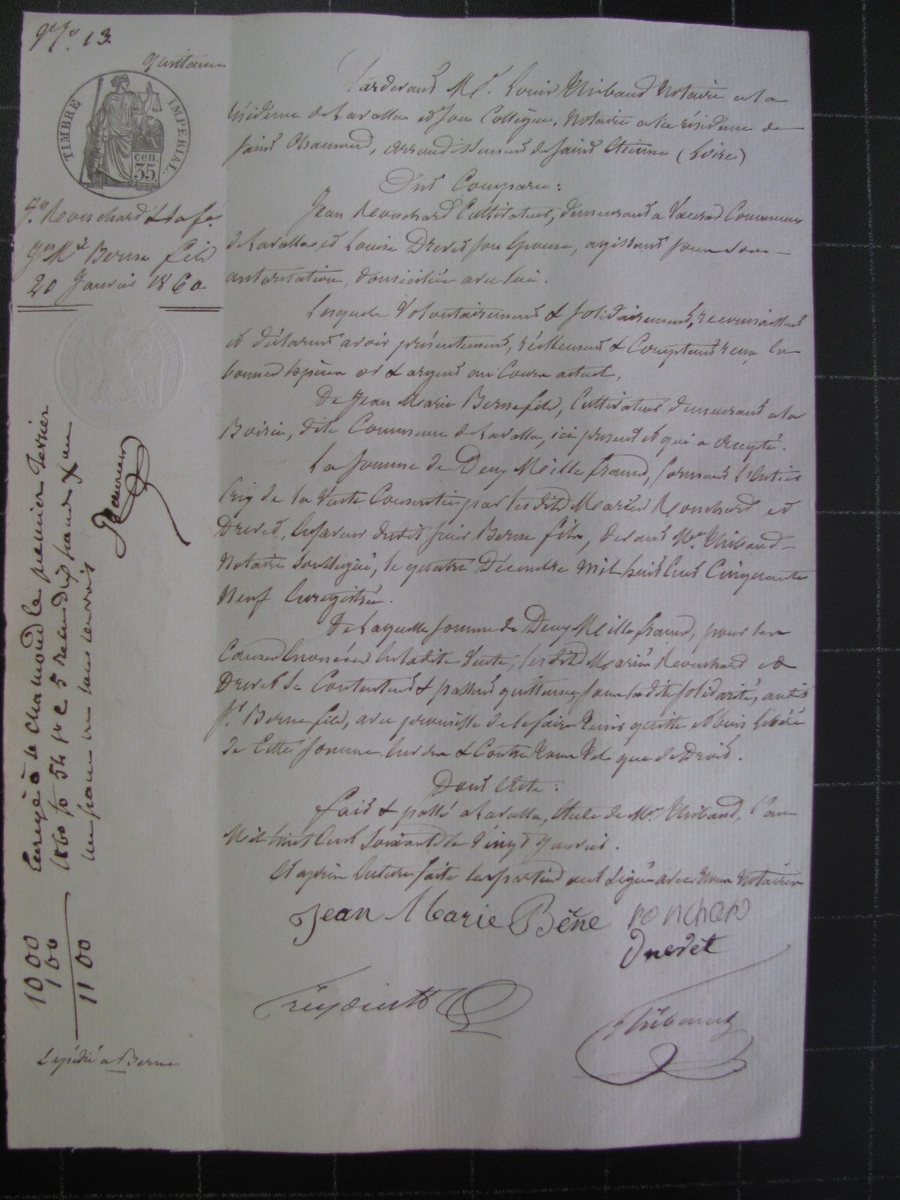 13.
quittance
TIMBRE IMPERIAL.
35 cen.
Jn Rouchard & sa fe
Jn Mie Berne fils
20 Janvier 1860
Pardevant Me Louis Thibaud Notaire à la
résidence de Lavalla et son Collègue, Notaire à la résidence de
Saint Chamond, arrondissement de Saint Etienne (Loire)
Ont Comparu:
Jean Rouchard Cultivateur, demeurant à Commune
de Lavalla, et Louise Drevet son épouse, agissant sous son
autorisation, domiciliée avec lui.
Lesquels Volontairement & solidairement, reconnaissent
et déclarent avoir présentement, réellement & Comptant reçu en
bonnes espèces or & argent au Cours actuel,
De Jean Marie Berne fils, Cultivateur, demeurant à la
dite Commune de Lavalla, ici présent et qui a accepté.
La Somme de Deux Mille francs, formant l'entier
prix de la Vente Consentie par lesdits Mariés Rouchard et
Drevet, en faveur dudit Berne fils, devant Me Thibaud
Notaire soussigné, le quatre Décembre mil huit cent Cinquante
Neuf enregistrée.
De laquelle somme de Deux Mille francs, pour les
Causes énoncées en ladite Vente, lesdits Mariés Rouchard et
Drevet se Contentent & passent quittance sous ladite solidarité, audit
Sr Berne fils, avec promesse de le faire tenir quitte et bien libéré
de cette somme envers & Contre tous tels que de Droit.
Dont Acte:
fait & passé à Lavalla, étude de Me Thibaud, l'an
Mil huit Cent Soixante le Vingt Janvier.
Et après lecture faite les parties ont signé avec nous Notaires
Jean Marie Bêne ronchard
Drevet
Thibaud
Enregé à St Chamond le premier février
1860 fo 54 vo c 5 reçu dix francs Xme
un franc
10 00
1 00
11 00
Expédié à Berne